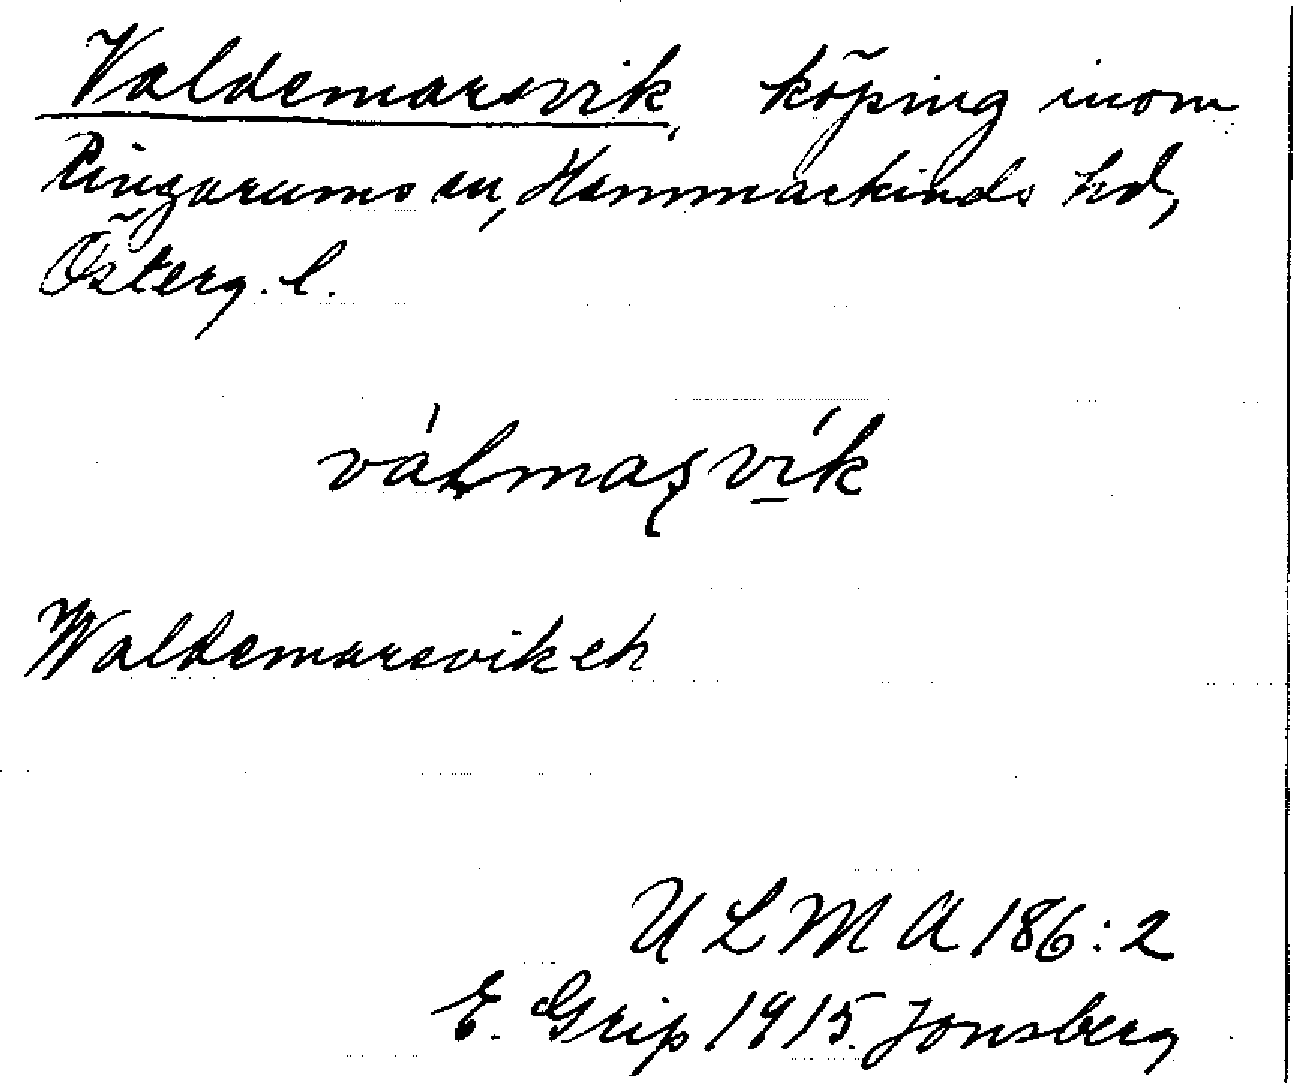 Valdemarsvik, köping inom
Ringarums sn, Hammarkinds hd,
Österg. l.
válmas̨ vík
Waldemarsvik ek
U L M A 186:2
E. Grip 1915. Jonsberg